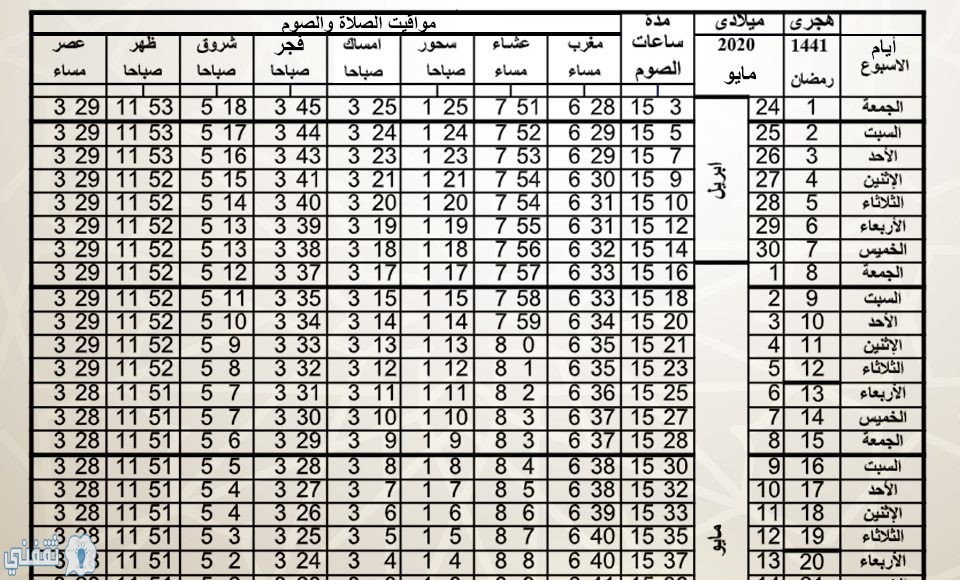 هجرى ميلادى مدة مواقيت الصلاة والصوم
أيام 1441 2020 ساعات مغرب عشاء سحور امساك فجر شروق ظهر عصر
الاسبوع رمضان مايو الصوم مساء مساء صباحا صباحا صباحا صباحا صباحا مساء
الجمعة 1 24 15 3 6 28 7 51 1 25 3 25 3 45 5 18 11 53 3 29
السبت 2 25 15 5 6 29 7 52 1 24 3 24 3 44 5 17 11 53 3 29
الأحد 3 26 15 7 6 29 7 53 1 23 3 23 3 43 5 16 11 53 3 29
الإثنين 4 27 ابريل 15 9 6 30 7 54 1 21 3 21 3 41 5 15 11 52 3 29
الثلاثاء 5 28 15 10 6 31 7 54 1 20 3 20 3 40 5 14 11 52 3 29
الأربعاء 6 29 15 12 6 31 7 55 1 19 3 19 3 39 5 13 11 52 3 29
الخميس 7 30 15 14 6 32 7 56 1 18 3 18 3 38 5 13 11 52 3 29
الجمعة 8 1 15 16 6 33 7 57 1 17 3 17 3 37 5 12 11 52 3 29
السبت 9 2 15 18 6 33 7 58 1 15 3 15 3 35 5 11 11 52 3 29
الأحد 10 3 15 20 6 34 7 59 1 14 3 14 3 34 5 10 11 52 3 29
الإثنين 11 4 15 21 6 35 8 0 1 13 3 13 3 33 5 9 11 52 3 29
الثلاثاء 12 5 15 23 6 35 8 1 1 12 3 12 3 32 5 8 11 52 3 29
الأربعاء 13 6 15 25 6 36 8 2 1 11 3 11 3 31 5 7 11 51 3 28
الخميس 14 7 15 27 6 37 8 3 1 10 3 10 3 30 5 7 11 51 3 28
الجمعة 15 8 15 28 6 37 8 3 1 9 3 9 3 29 5 6 11 51 3 28
السبت 16 9 15 30 6 38 8 4 1 8 3 8 3 28 5 5 11 51 3 28
الأحد 17 10 15 32 6 38 8 5 1 7 3 7 3 27 5 4 11 51 3 28
الإثنين 18 11 15 33 6 39 8 6 1 6 3 6 3 26 5 4 11 51 3 28
الثلاثاء 19 12 مايو 15 35 6 40 8 7 1 5 3 5 3 25 5 3 11 51 3 28
الأربعاء 20 13 15 37 6 40 8 8 1 4 3 4 3 24 5 2 11 51 3 28
ثقفني